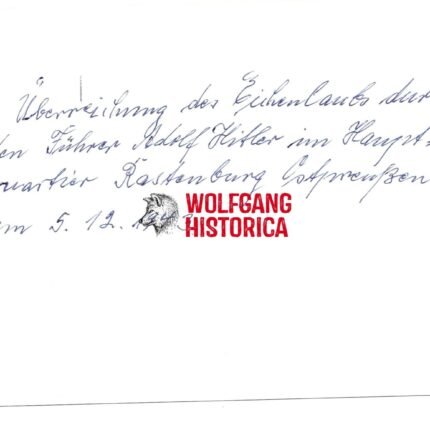 Überreichung des Eichenlaubs dur
en Führer Adolf Hitler im Haupt=
uartier Rastenburg Ostpreußen
m 5. 12.
WOLFGANG
HISTORICA